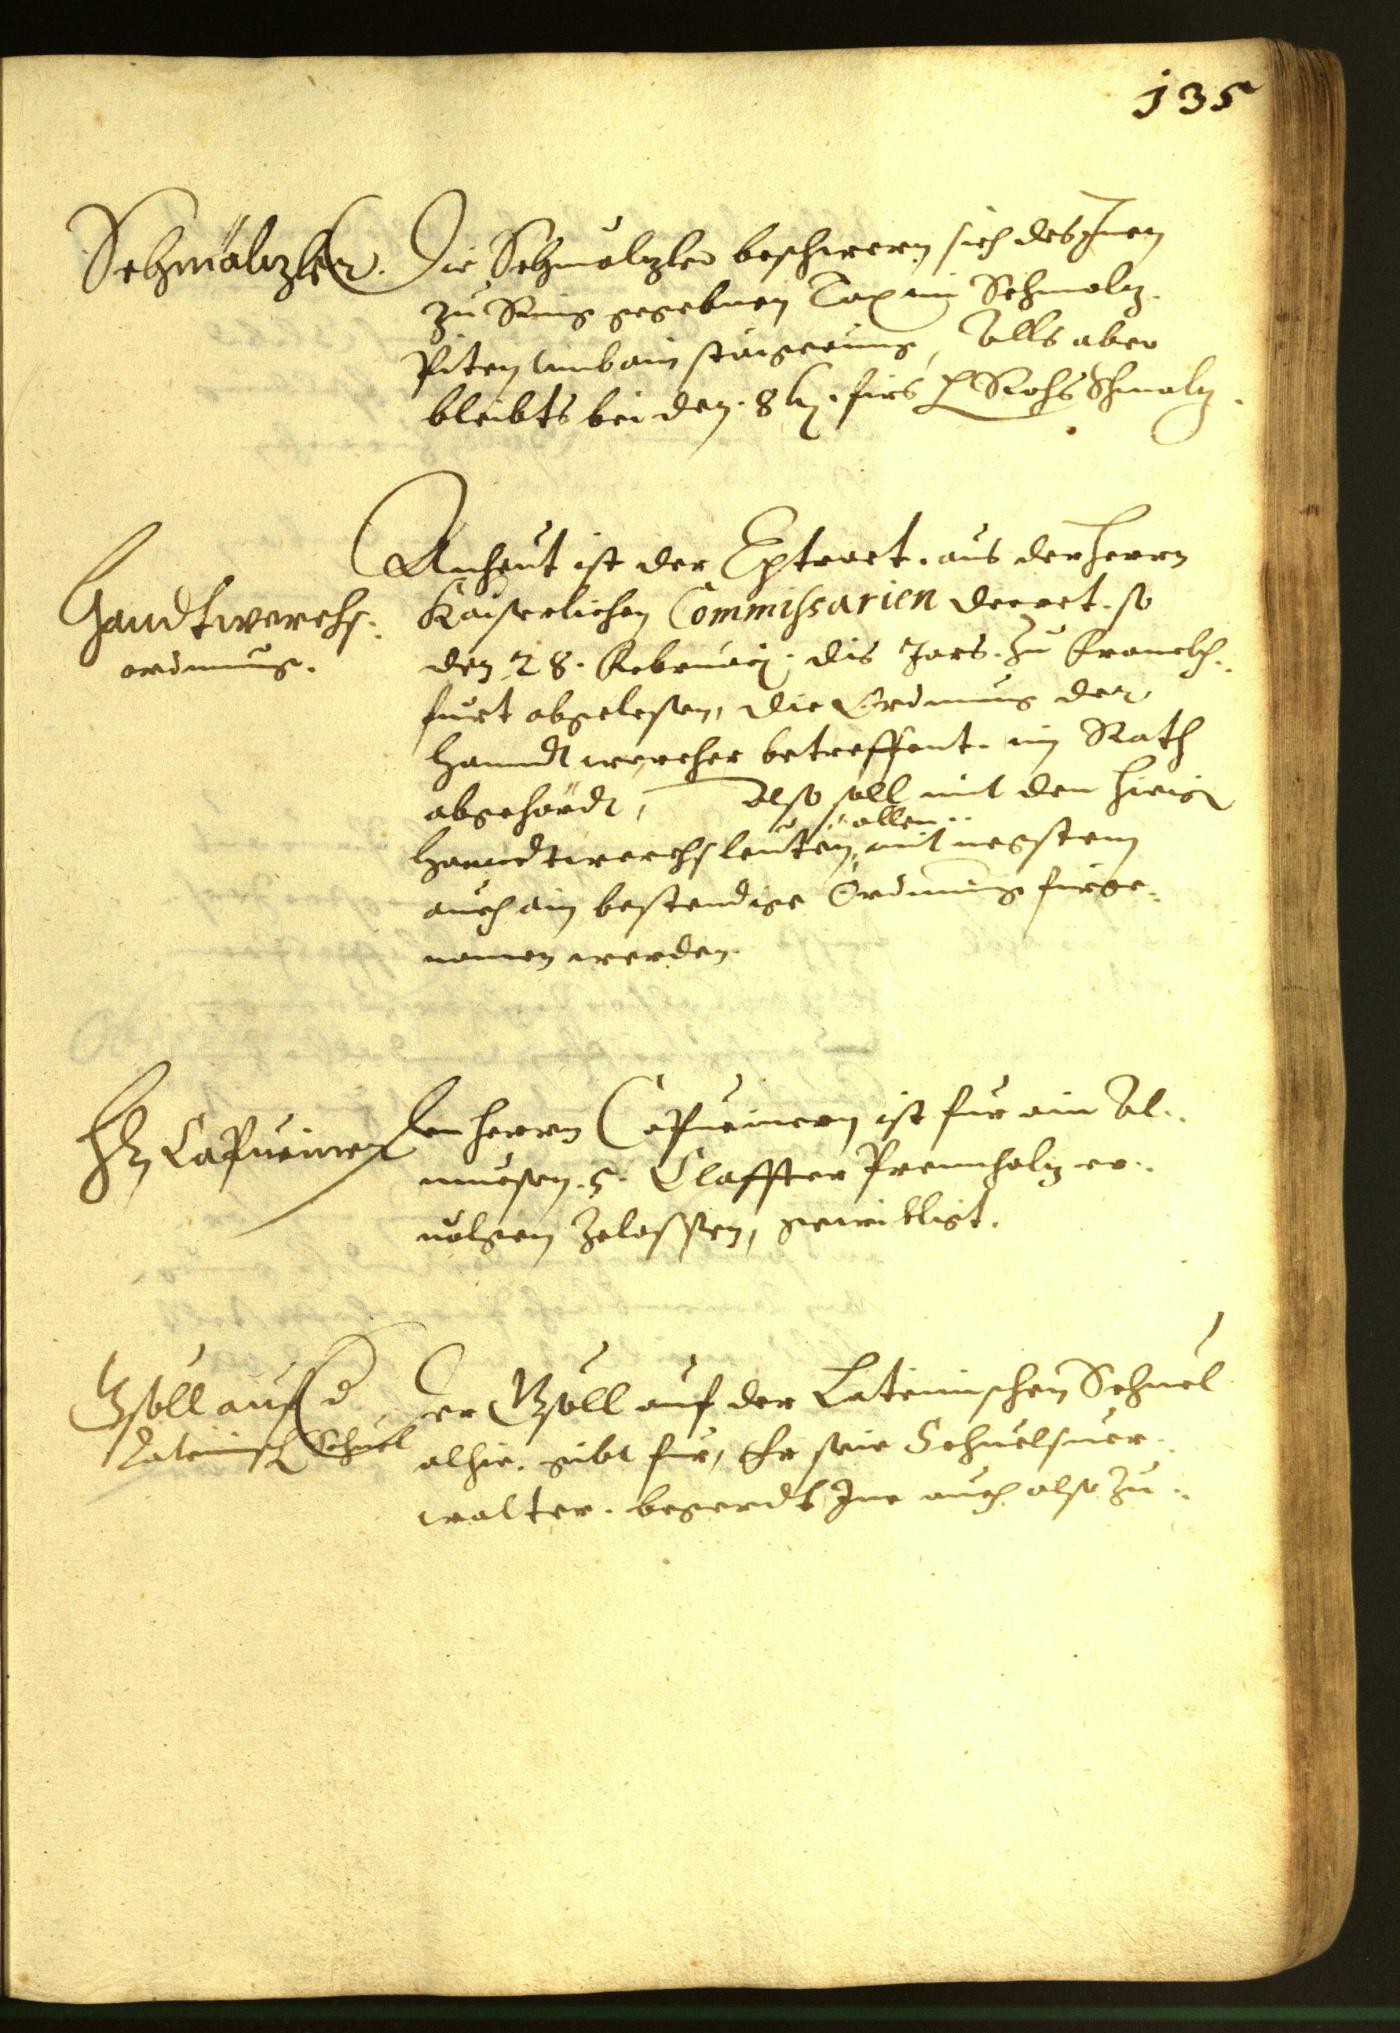 135
Schmälzler.
Die Schmälzler beschwern sich des Inen
zu Ring gegebnen Tax im Schmalz.
Piten umb ain staigerung, Alls aber
bleibts bei den 8 firs Rohs Schmalz.
Handtwerchs
ordnung.
An heut ist der Extract. aus der Herrn
Kaiserlichen Commissarien decret. so
den 28. Februarj. dis Jars. Zu Franckh-
furt abgelesen, die Ordnung der
Hanndtwercher betreffent. im Rath
abgehördt, Also soll mit den hieig
allen
Hanndtwerchsleuten, mit negstem
auch ain bestendige Ordnung fürge-
nomen werden.
Hn Capuciner
Den Herrn Capucinern ist fur ain Al-
muesen. 5. Claffter Prennholz er-
uolgen zelassen, gewilligt.
Gsöll auf d
Lateinisch Schuel
Der Gsöll auf der Lateinischen Schuel
alhie. gibt für, Er seie Schuelsuer-
walter. begerdt Ine auch also zu-